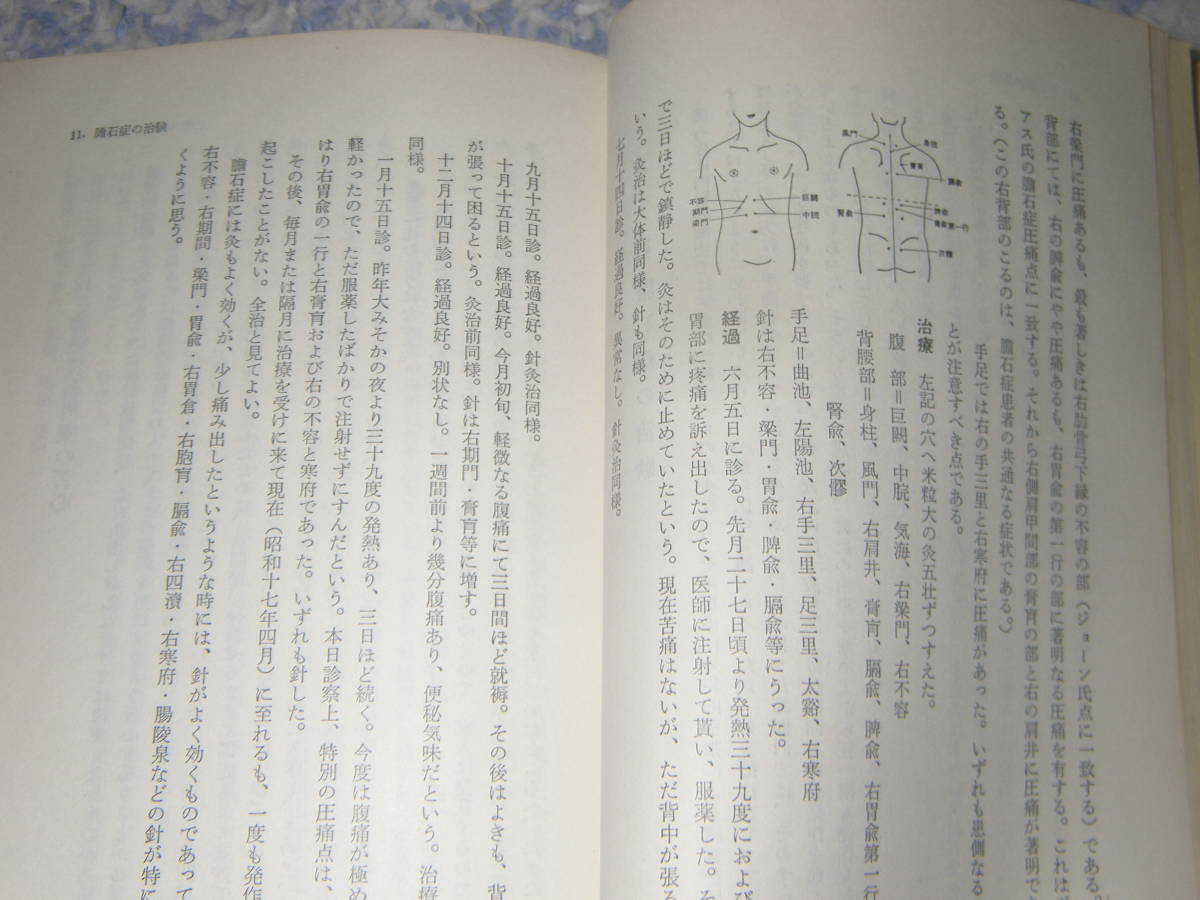 右梁門に圧痛あるも、最も著しきは右肋骨弓下縁の不容の部（ジョーン氏点に一致する）である。
背部にては、右の脾兪にやや圧痛あるも、右胃兪の第一行の部に著明なる圧痛を有する。これは
アス氏の膽石症圧痛点に一致する。それから右側肩甲間部の膏肓の部と右の肩井に圧痛が著明で
る。（この右背部のこるのは、膽石症患者の共通なる症状である。）
手足では右の手三里と右寒府に圧痛があった。いずれも患側なる
とが注意すべき点である。
治療　左記の穴へ米粒大の灸五壮ずつすえた。
腹　部＝巨闕、中脘、気海、右梁門、右不容
背腰部＝身柱、風門、右肩井、膏肓、膈兪、脾兪、右胃兪第一行
腎兪、次髎
手足＝曲池、左陽池、右手三里、足三里、太谿、右寒府
針は右不容・梁門・胃兪・脾兪・膈兪等にうった。
経過　六月五日に診る。先月二十七日頃より発熱三十九度におよび
胃部に疼痛を訴え出したので、医師に注射して貰い、服薬した。そ
で三日ほどで鎮静した。灸はそのために止めていたという。現在苦痛はないが、ただ背中が張る
いう。灸治は大体前同様、針も同様。
七月十四日診。経過良好。異常なし。針灸治同様。
風門
身柱
膏肓
膈兪
脾兪
腎兪
胃兪第一行
次髎
不容
期門
梁門
巨闕
中脘
11. 膽石症の治験
九月十五日診。経過良好。針灸治同様。
十月十五日診。経過良好。今月初旬、軽微なる腹痛にて三日間ほど就褥。その後はよきも、背
が張って困るという。灸治前同様。針は右期門・膏肓等に増す。
十二月十四日診。経過良好。別状なし。一週間前より幾分腹痛あり、便秘気味だという。治療
同様。
一月十五日診。昨年大みそかの夜より三十九度の発熱あり、三日ほど続く。今度は腹痛が極め
軽かったので、ただ服薬したばかりで注射せずにすんだという。本日診察上、特別の圧痛点は、
はり右胃兪の一行と右膏肓および右の不容と寒府であった。いずれも針した。
その後、毎月または隔月に治療を受けに来て現在（昭和十七年四月）に至れるも、一度も発作
起こしたことがない。全治と見てよい。
膽石症には灸もよく効くが、少し痛み出したというような時には、針がよく効くものであって
右不容・右期間・梁門・胃兪・右胃倉・右胞肓・膈兪・右四瀆・右寒府・腸陵泉などの針が特に
くように思う。